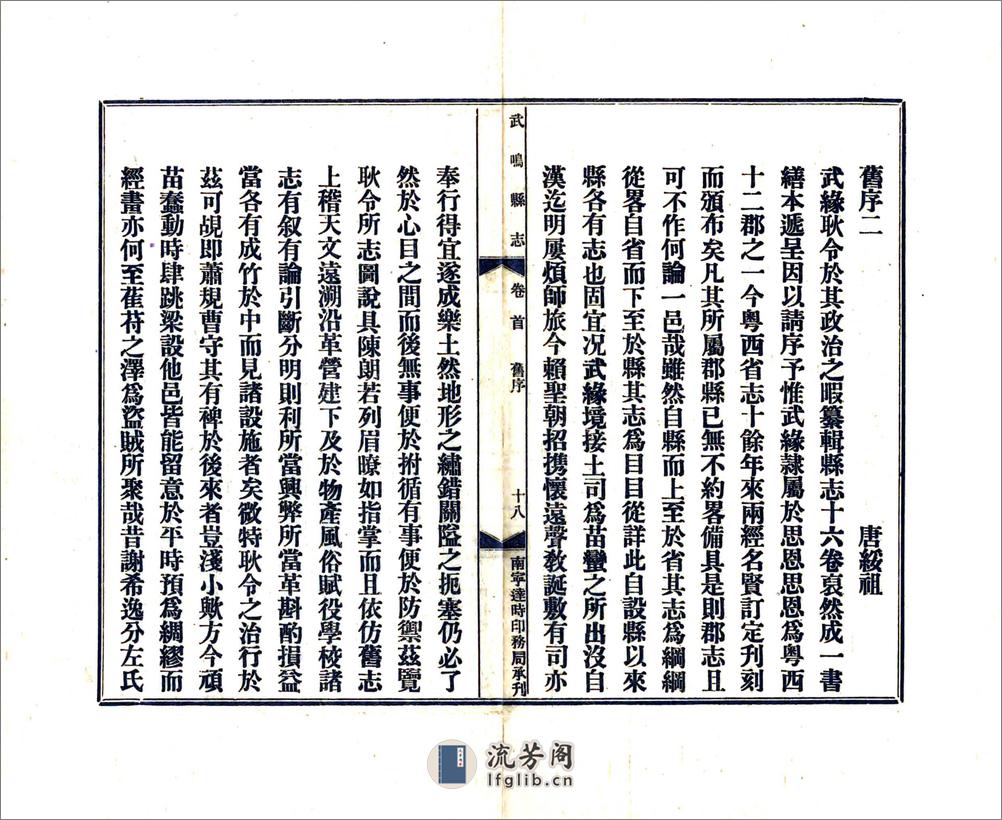 舊序二 唐綏祖
武緣耿令於其政治之暇纂輯縣志十六卷裒然成一書
繕本遞呈因以請序予惟武緣隷屬於思恩思恩爲粤西
十二郡之一今粤西省志十餘年來兩經名賢訂定刊刻
而頒布矣凡其所屬郡縣已無不約畧備具是則郡志且
可不作何論一邑哉雖然自縣而上至於省其志爲綱綱
從畧自省而下至於縣其志爲目目從詳此自設縣以來
縣各有志也固宜况武緣境接土司爲苗蠻之所出沒自
漢迄明屢煩師旅今賴聖朝招携懷遠聲教誕敷有司亦
武鳴縣志 卷首 舊序 十八 南寧達時印務局承刋
奉行得宜遂成樂土然地形之繡錯關隘之扼塞仍必了
然於心目之間而後無事便於拊循有事便於防禦茲覽
耿令所志圖說具陳朗若列眉瞭如指掌而且依仿舊志
上稽天文遠溯沿革營建下及於物產風俗賦役學校諸
志有叙有論引斷分明則利所當興弊所當革斟酌損益
當各有成竹於中而見諸設施者矣微特耿令之治行於
茲可覘即蕭規曹守其有裨於後來者豈淺小歟方今頑
苗蠢動時肆跳梁設他邑皆能留意於平時預爲綢繆而
經畫亦何至萑苻之澤爲盜賊所聚哉昔謝希逸分左氏
流芳阁
lfglib.cn